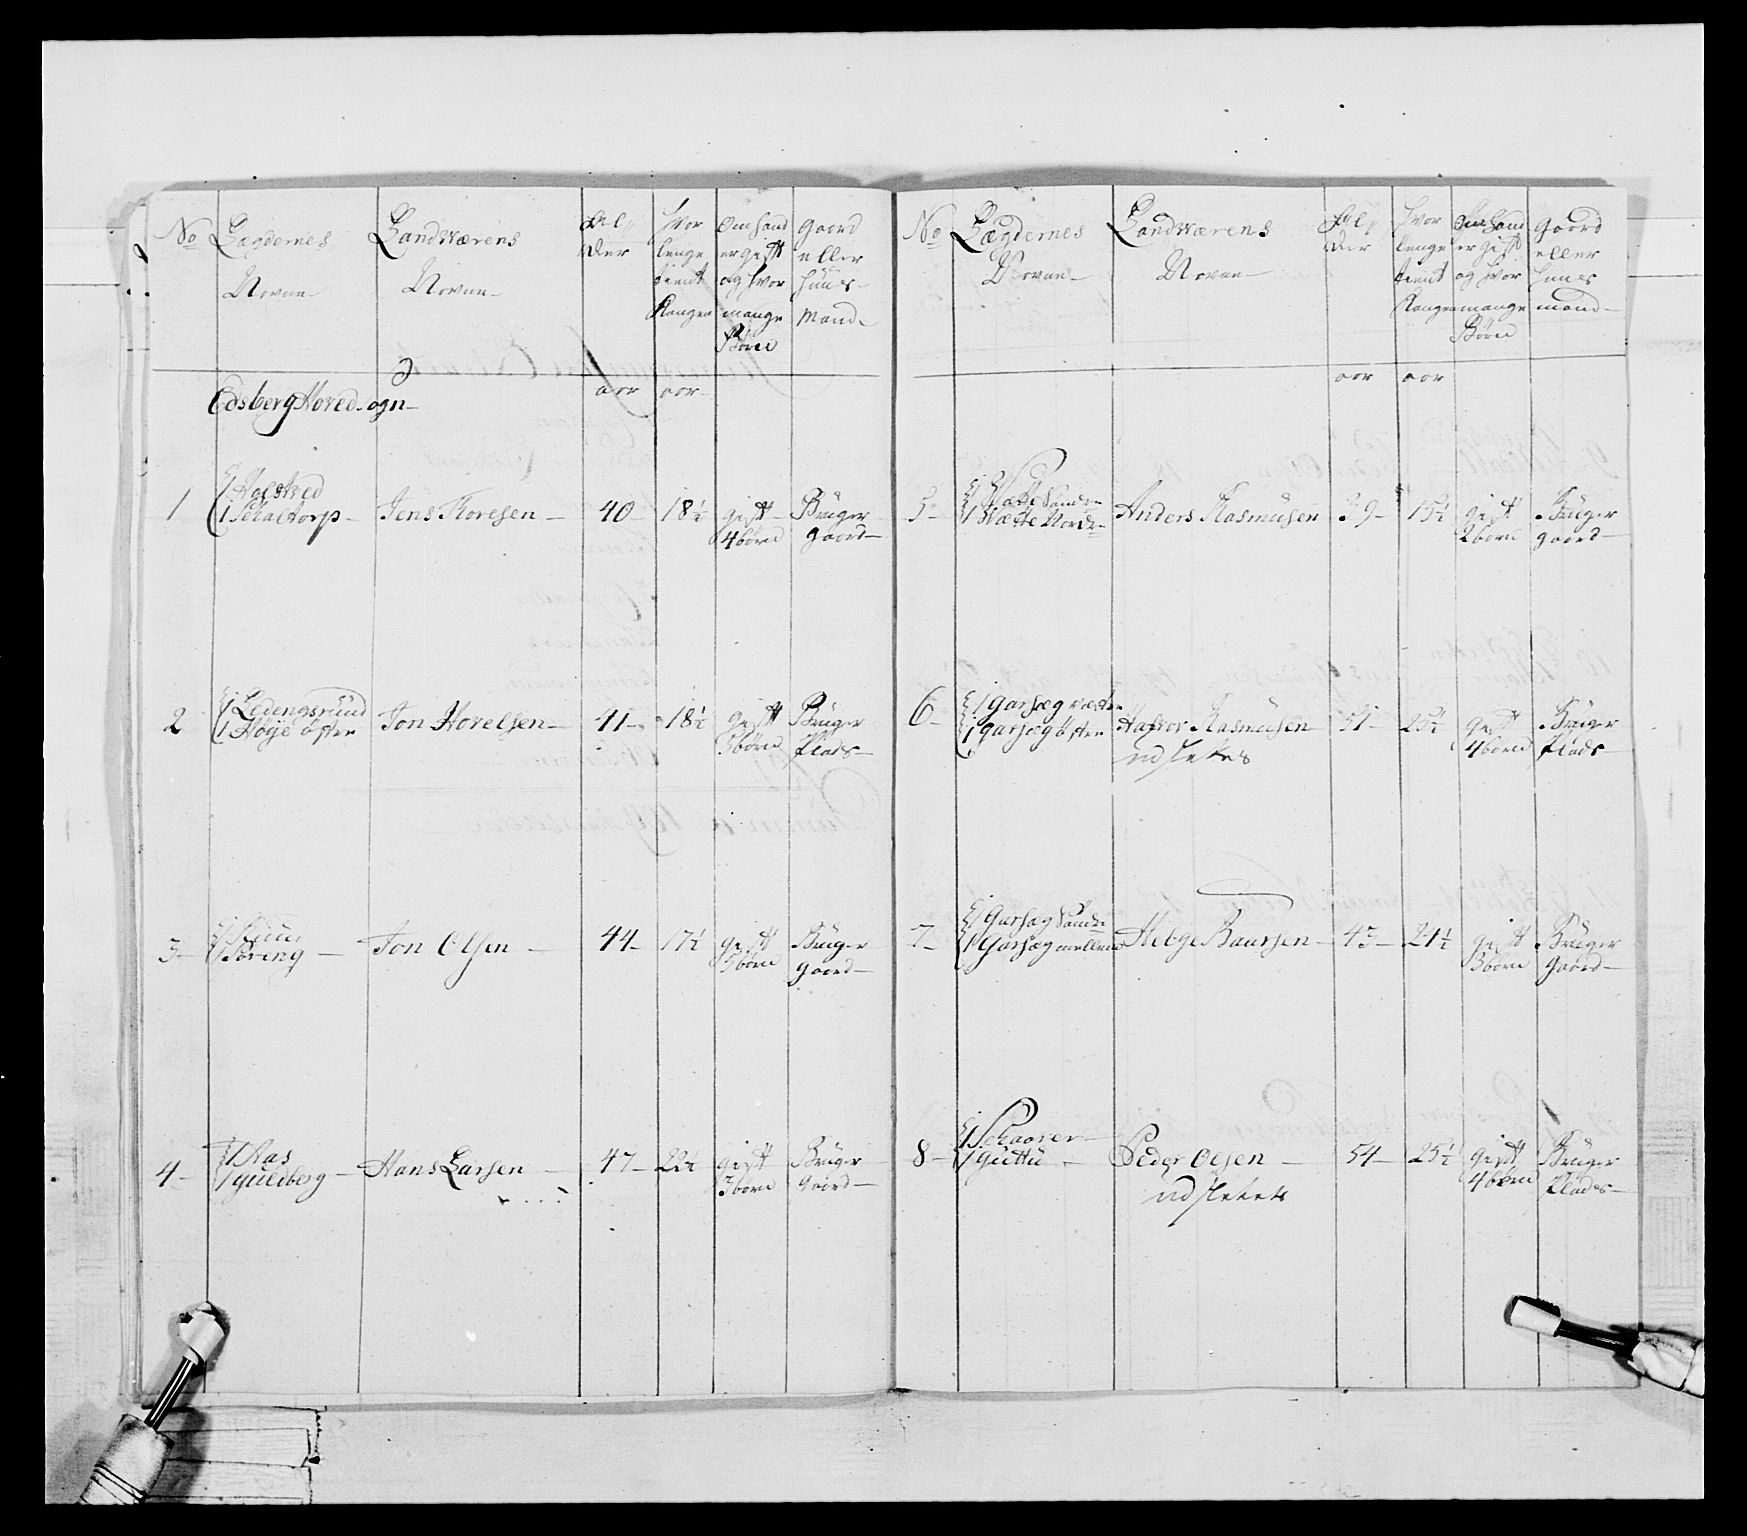 No
Lægdernes
Navne
Landværens
Navne
Al,
der
Hvor
lenge
tient
Kongen
Om hand
er gift
og hvor
mange
Børn
Gaard
eller
Huus-
Mand
Edsberg Hoved-Sogn
aar
aar
1
1 Holstved
1 Schaltorp
Jens Toresen
40
18½
gift
4 børn
Bruger
gaard
2
1 Ledengsrund
1 Høye Østen
Jon Horelsen
41
18½
gift
5 børn
Bruger
Plads
3
Jon Olsen
44
17½
gift
5 børn
Bruger
gaard
4
1 Næs
1 guldberg
Hans Larsen
47
22½
gift
3 børn
Bruger
Gaard
No
Lægdernes
Navne
Landværens
Navne
Al,
der
Hvor
lenge
tient
Kongen
Om hand
er gift
og hvor
mange
Børn
Gaard
eller
Huus
mand
aar
aar
5
1 Slætte Sønden
1 Slætte Norden
Anders Rasmusen
39
15½
gift
2 børn
Bruger
gaard
6
1 garseg vesten
1 garseg Østen
Hafvor Rasmusen
udslettes
51
25½
gift
4 børn
Bruger
Plads
7
1 garseg Sønden
1 Garseg mellem
Helge Baursen
43
24½
gift
3 børn
Bruger
Gaard
8
1 Schaarer
1 guttu
Peder Olsen
udslettes
54
25½
gift
4 børn
Bruger
Plads